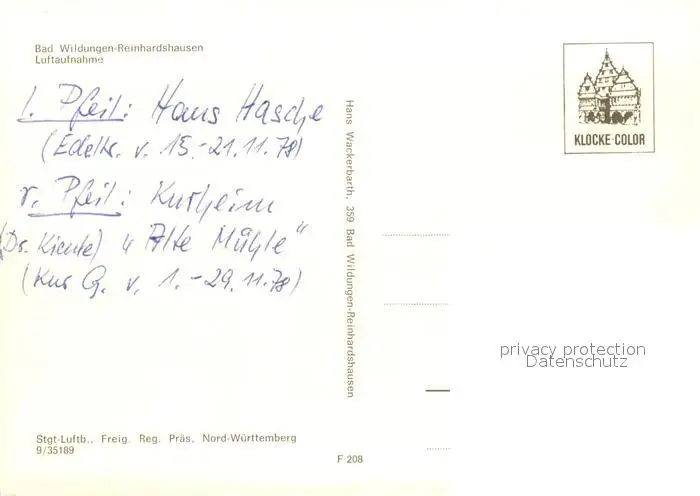 Bad Wildungen-Reinhardshausen
Luftaufnahme
l. Pfeil: Haus Hasche
(Edeltr. v. 15.-21.11.78)
r. Pfeil: Kurheim
(Dr. Kienle) "Alte Mühle"
(Kur G. v. 1.-29.11.78)
Hans Wackerbarth, 359 Bad Wildungen-Reinhardshausen
KLOCKE-COLOR
privacy protection
Datenschutz
Stgt-Luftb., Freig. Reg. Präs. Nord-Württemberg
9/35189
F 208